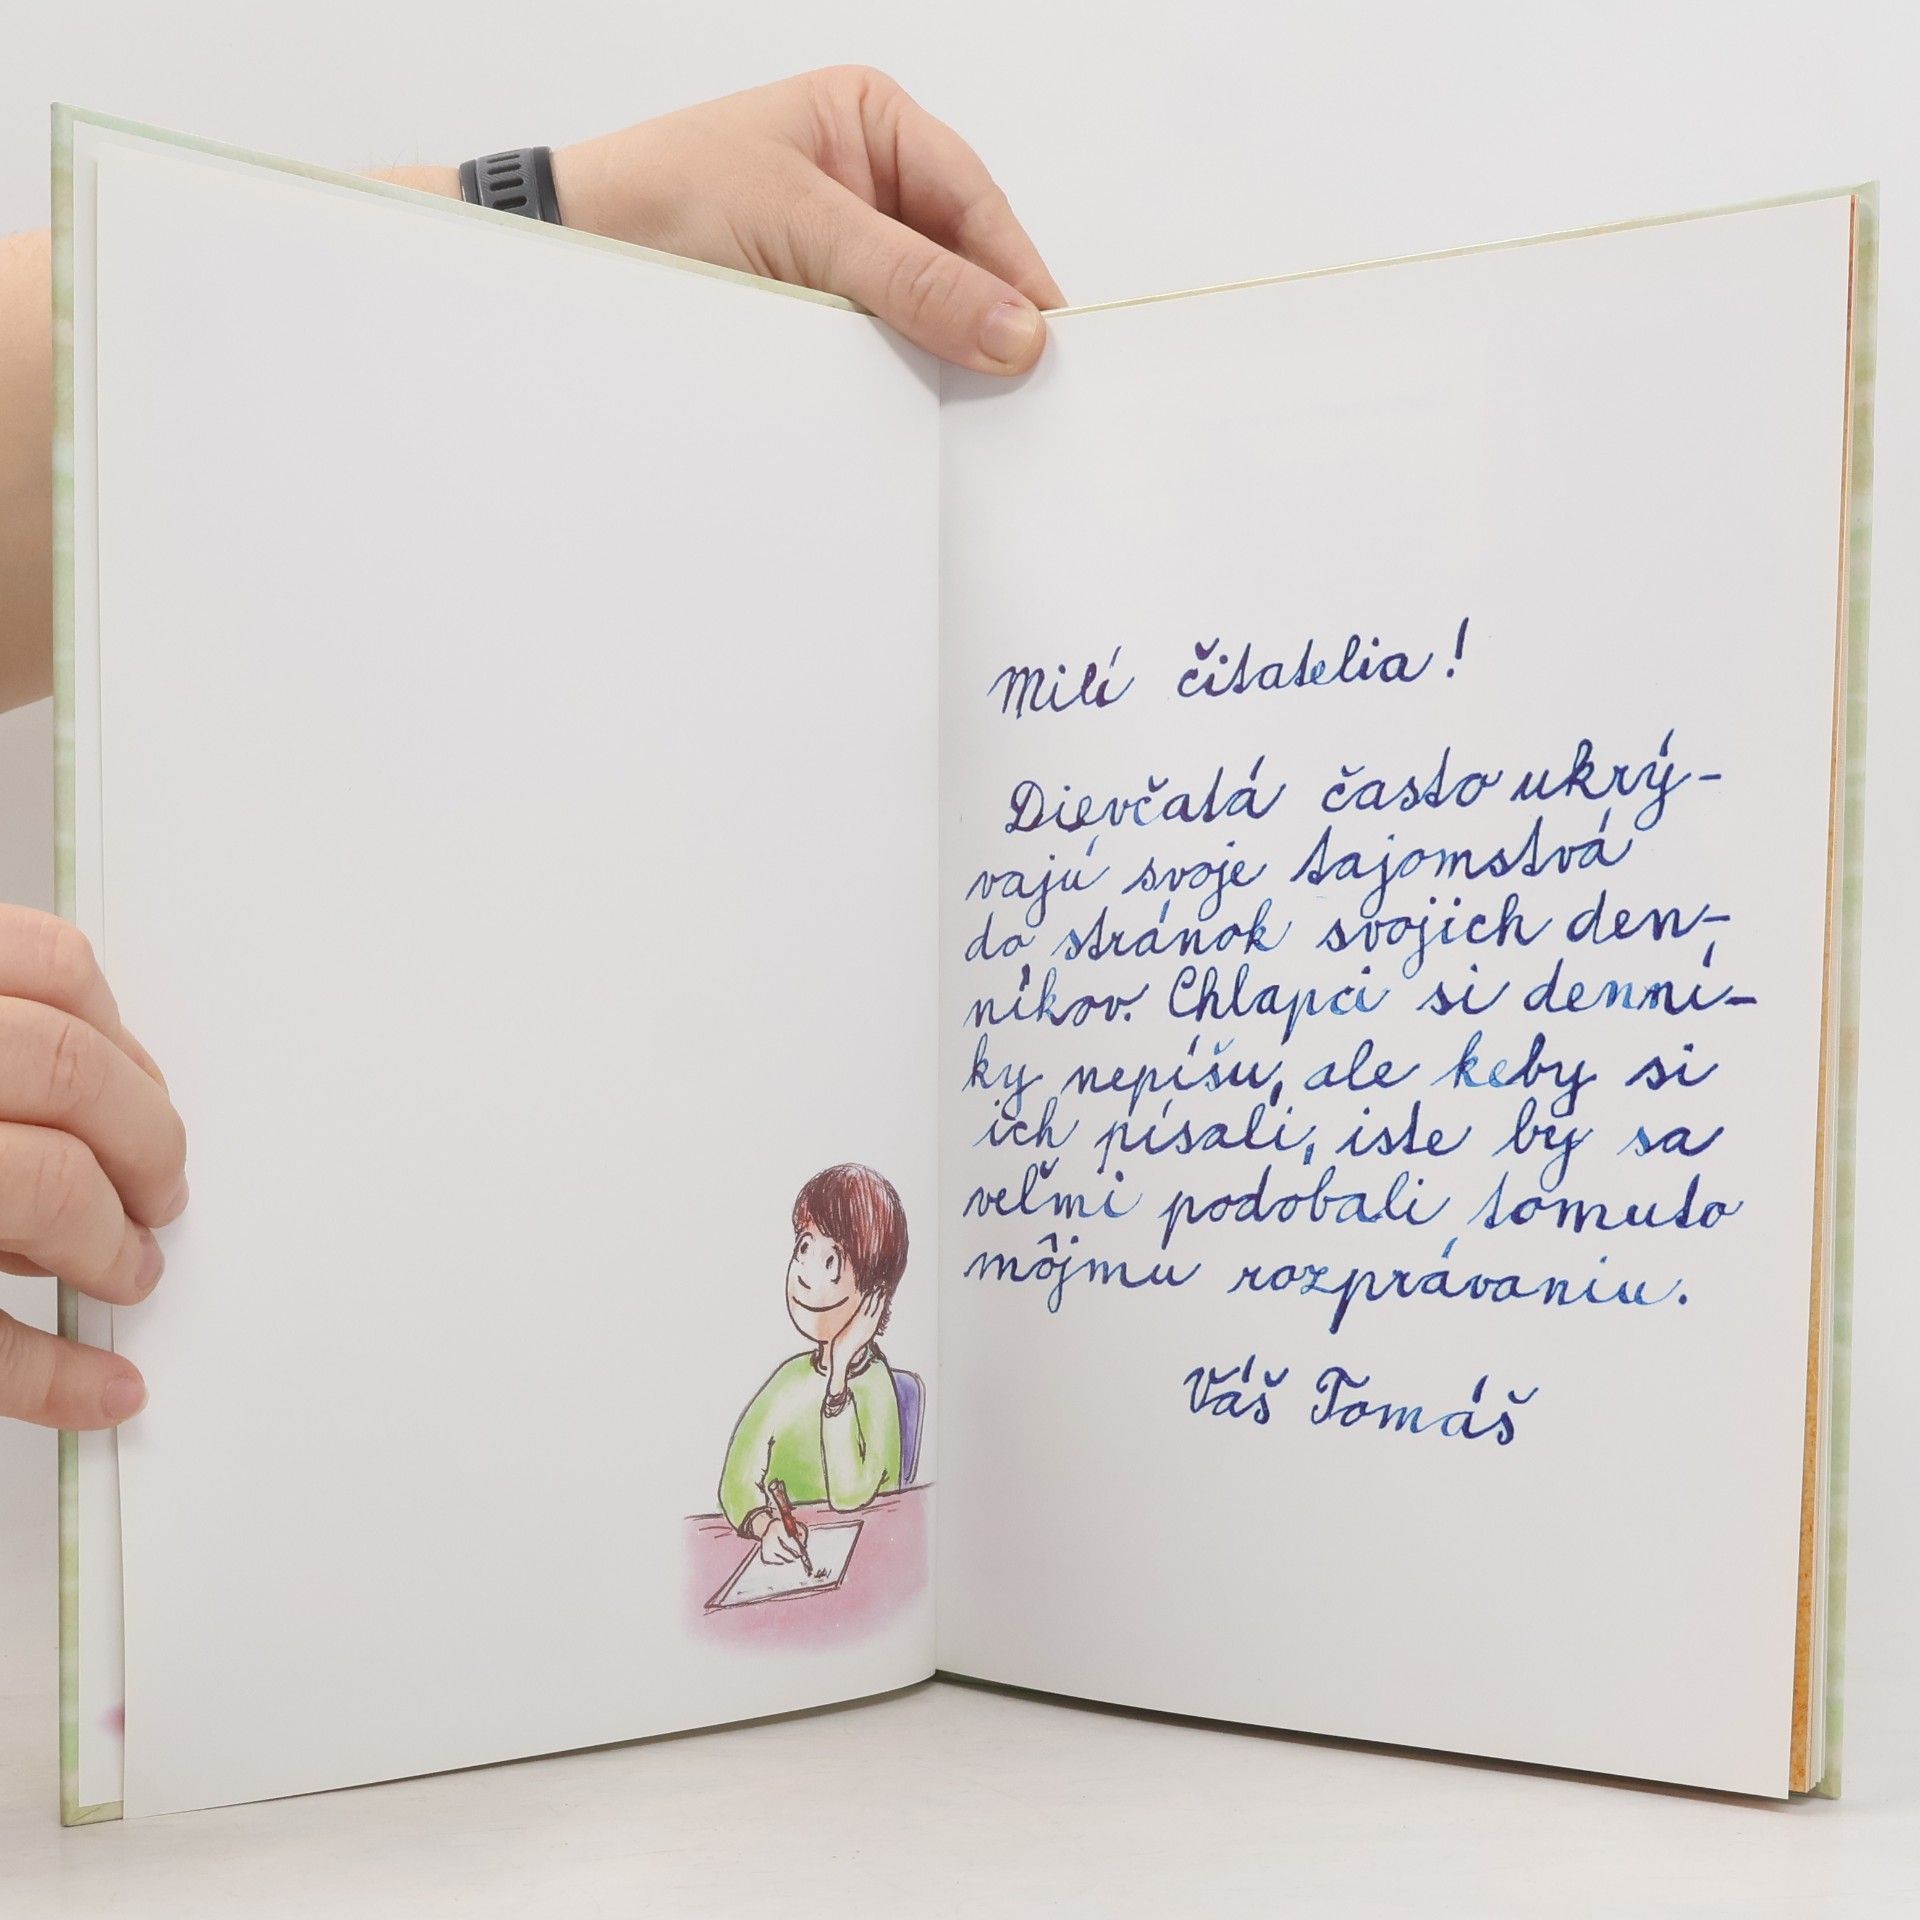 Milí čitatelia!
Dievčatá často ukrý-
vajú svoje tajomstvá
do stránok svojich den-
níkov. Chlapci si denní-
ky nepíšu, ale keby si
ich písali, iste by sa
veľmi podobali tomuto
môjmu rozprávaniu.
Váš Tomáš